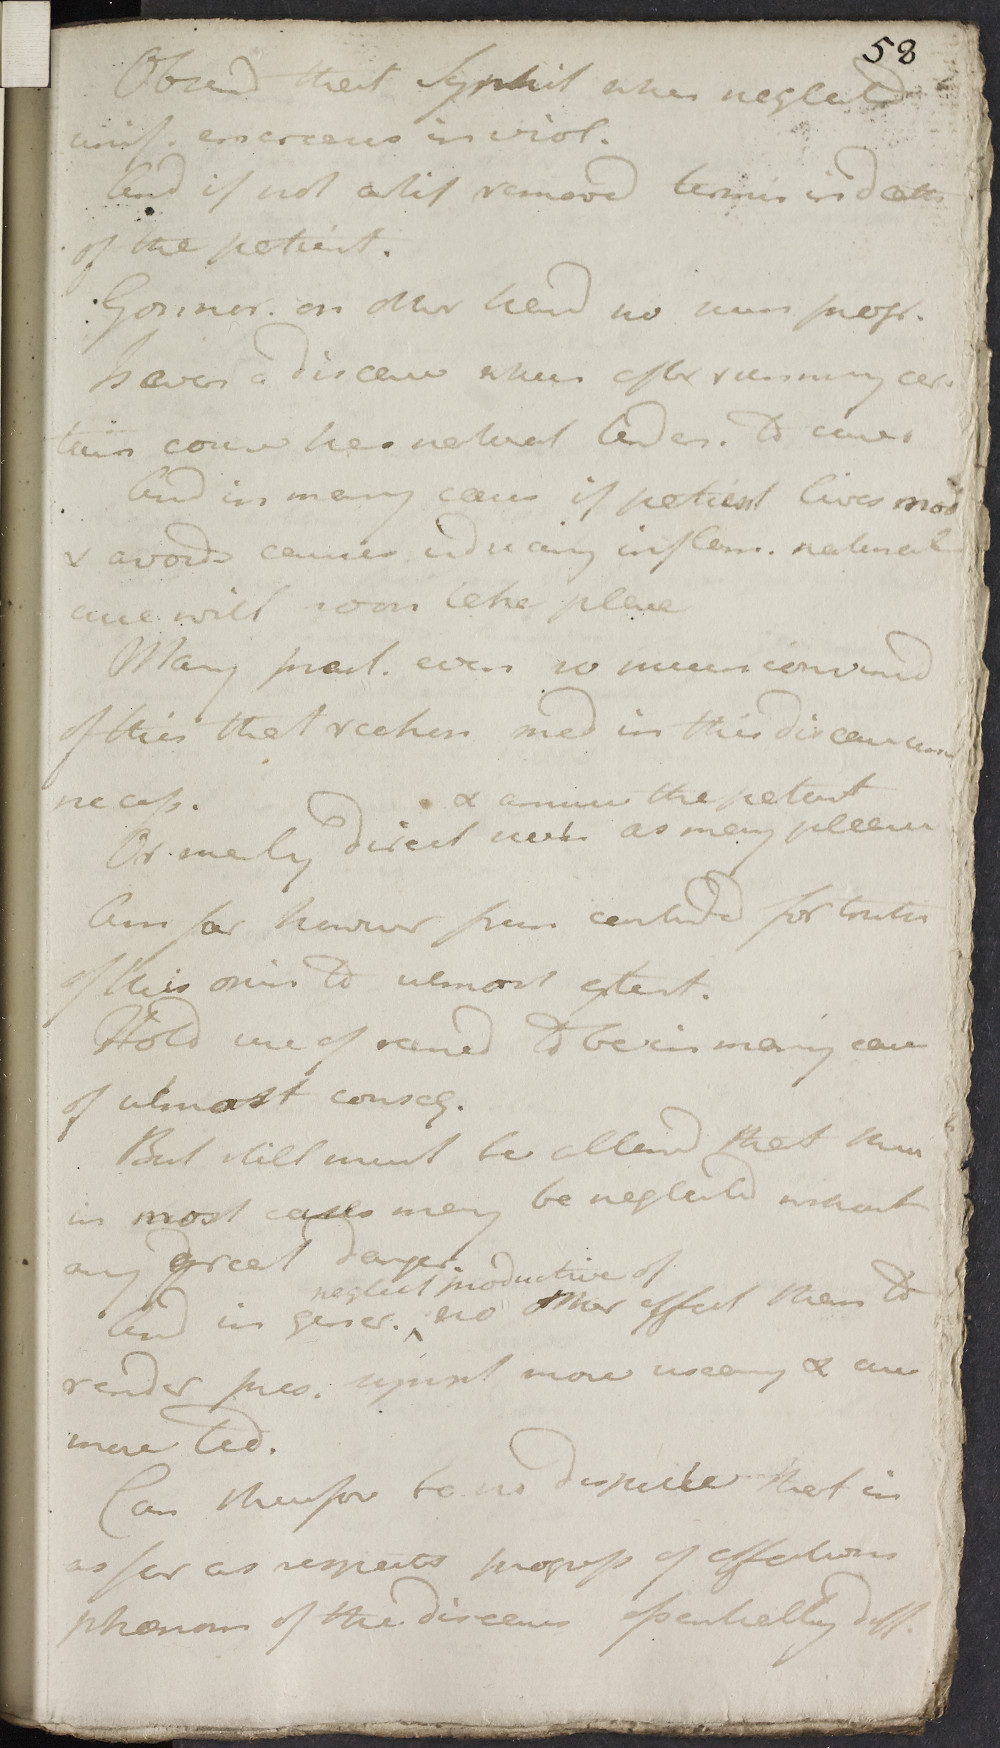 58
Observd that Syphil when neglectd
unif. encreases in viol.
And if not artif removed termin in death
of the patient.
Gonnor. on other hand no such progr.
Is even a disease which after running cer-
tain course has natural tenden. to cure
And in many cases if patient lives mod
& avoids causes inducing inflam. natural
cure will soon take place
Many pract. even so much convincd
of this that reckon med in this disease un
necess.
& amuse the patient
Or merely direct such as may please
Am far however from contendg for truth
of this opin to utmost extent.
Hold use of remed to be in many cases
of utmost conseq.
But still must be allowd that these
in most cases may be neglected without
any great danger.
neglect productive of
And in gener. ^ no other effect than to
render pres. sympt more uneasy & cure
more ted.
Can therefore be no dispute that in
as far as respects progress of affections
phenom of the diseases essentially diff.